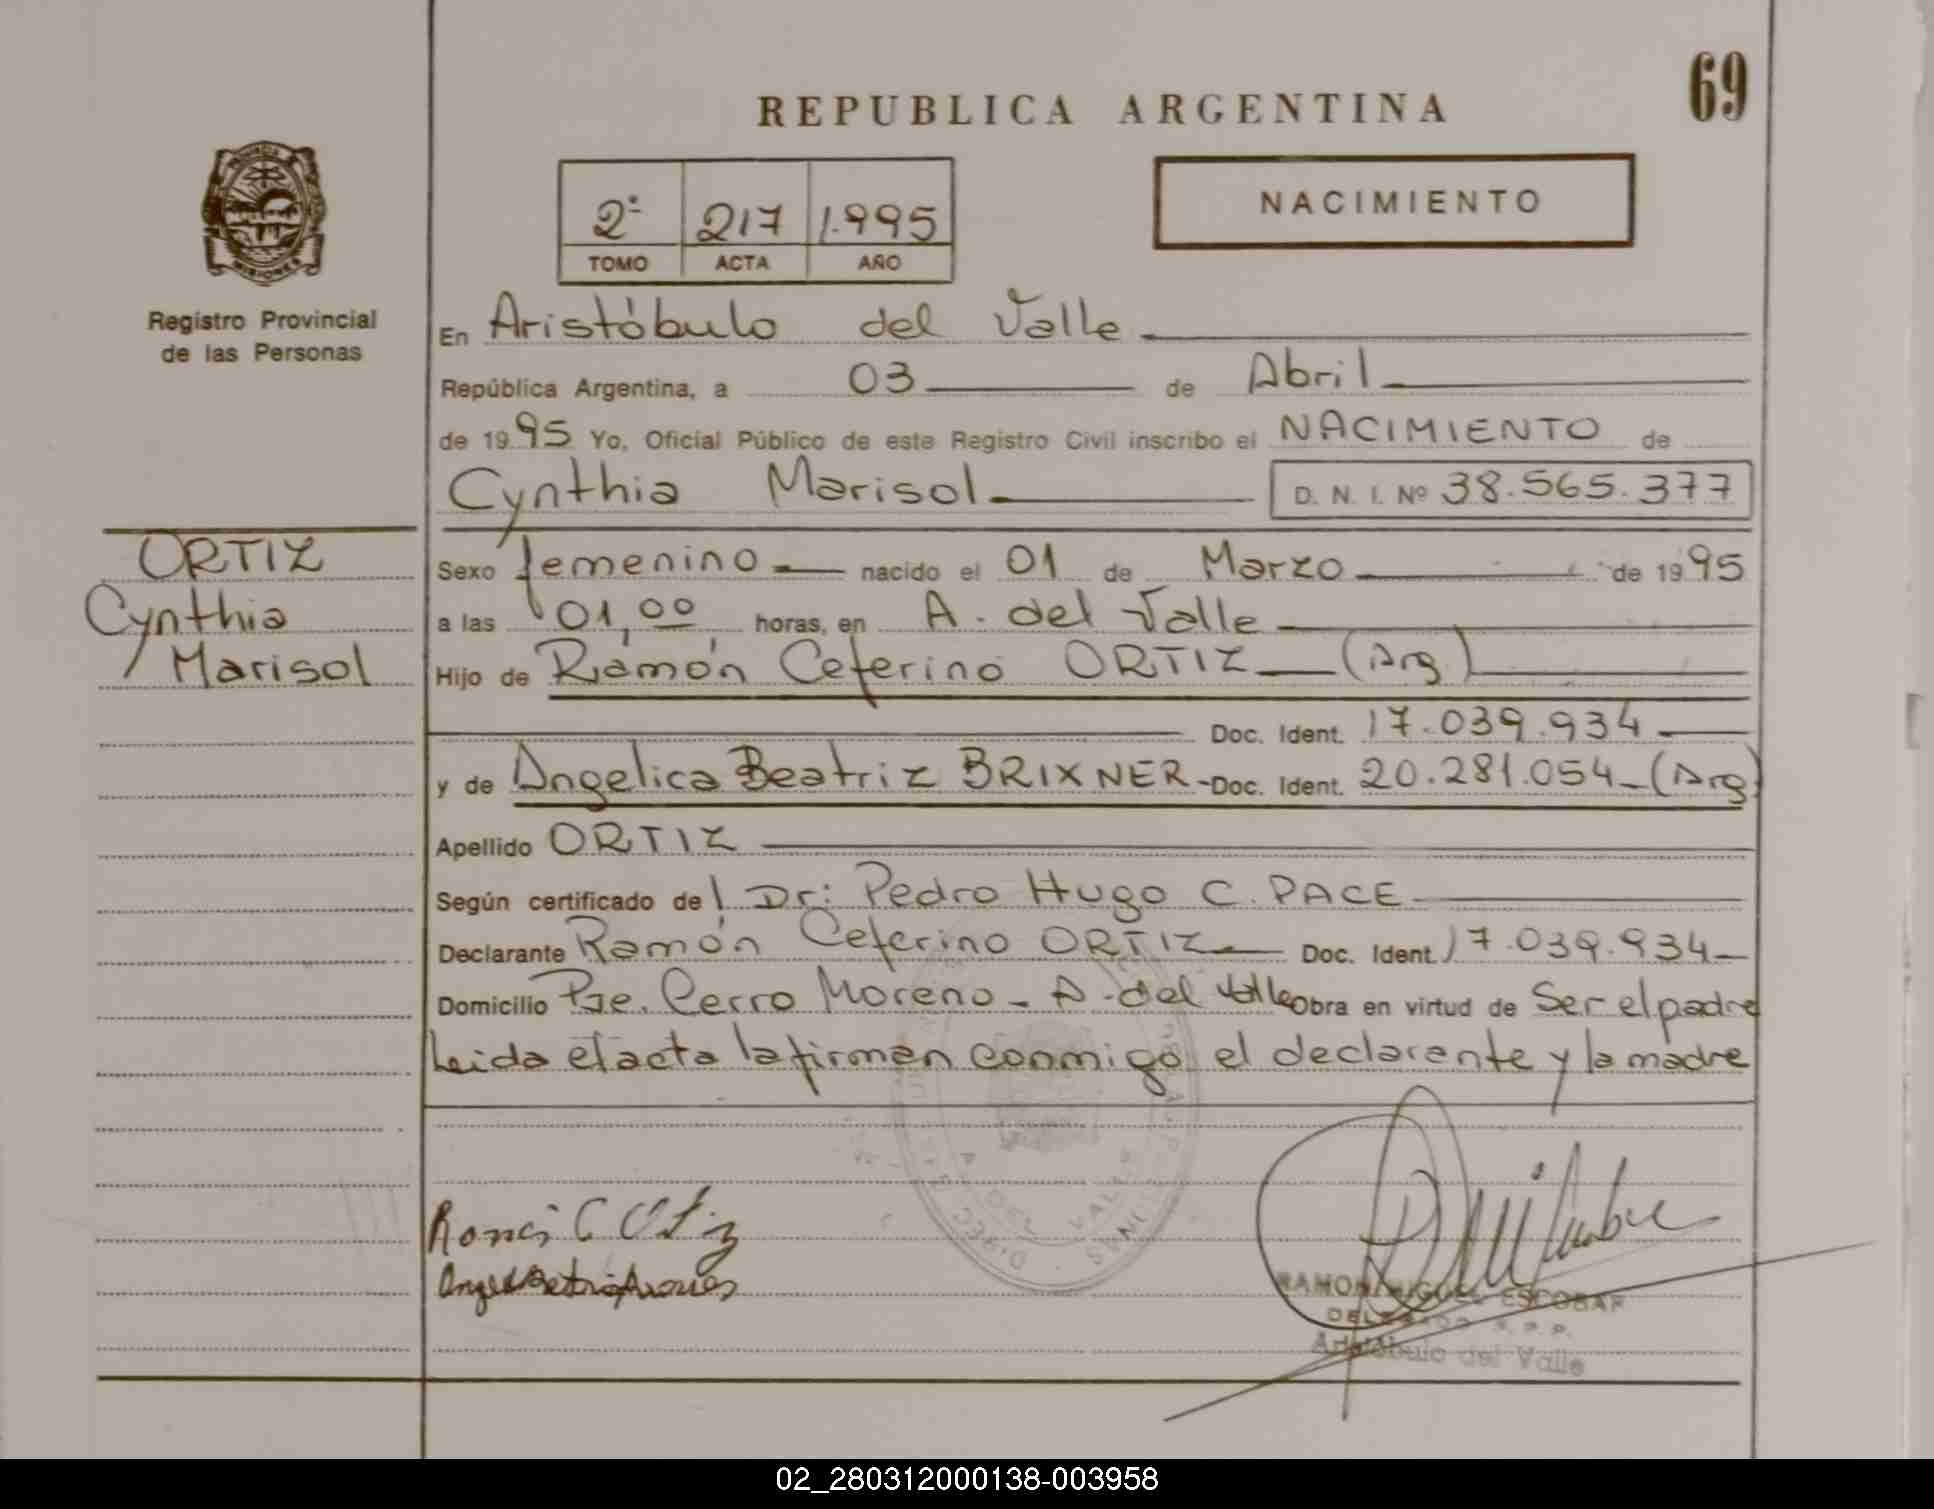 69
REPUBLICA ARGENTINA
2º 217 1.995
TOMO ACTA AÑO
NACIMIENTO
Registro Provincial
de las Personas
En Aristóbulo del Valle
República Argentina, a 03 de Abril
de 1995 Yo, Oficial Público de este Registro Civil inscribo el NACIMIENTO de
Cynthia Marisol D. N. I. Nº 38.565.377
ORTIZ
Cynthia
Marisol
Sexo femenino nacido el 01 de Marzo de 1995
a las 01,00 horas, en A. del Valle
Hijo de Ramón Ceferino ORTIZ (Arg)
Doc. Ident. 17.039.934
y de Angelica Beatriz BRIXNER - Doc. Ident. 20.281.054 (Arg)
Apellido ORTIZ
Según certificado del Dr: Pedro Hugo C. PACE
Declarante Ramón Ceferino ORTIZ Doc. Ident. 17.039.934
Domicilio Pje. Cerro Moreno - A. del Valle Obra en virtud de Ser el padre
Leida el acta la firman conmigo el declarante y la madre
RAMON MIGUEL ESCOBAR
DELEGADO R. P. P.
Aristóbulo del Valle
02_280312000138-003958